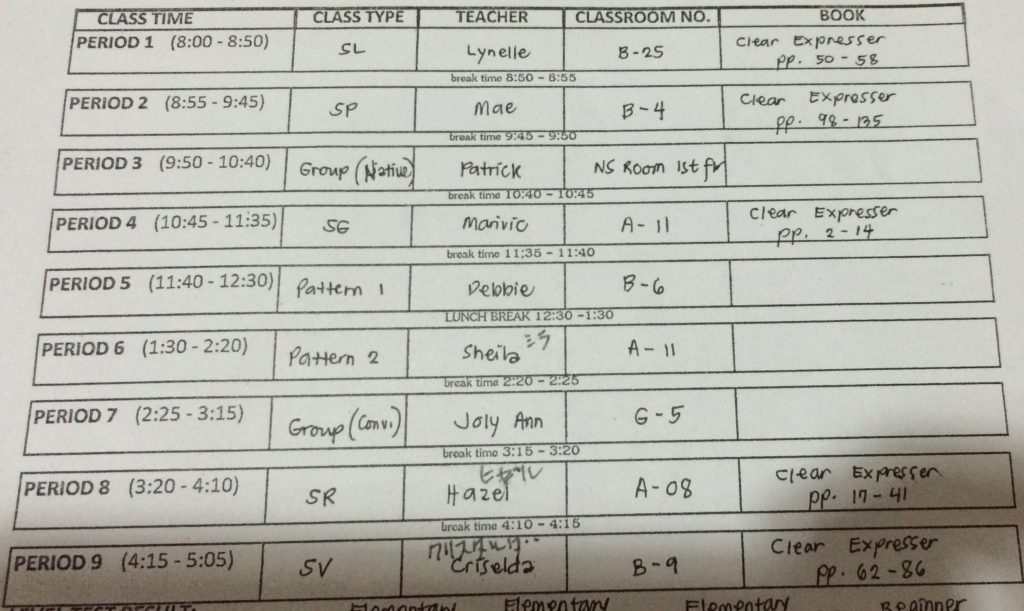 CLASS TIME CLASS TYPE TEACHER CLASSROOM NO. BOOK
PERIOD 1 (8:00 - 8:50) SL Lynelle B-25 Clear Expresser
pp. 50 - 58
break time 8:50 - 8:55
PERIOD 2 (8:55 - 9:45) SP Mae B-4 Clear Expresser
pp. 98 - 135
break time 9:45 - 9:50
PERIOD 3 (9:50 - 10:40) Group (Native) Patrick NS Room 1st flr
break time 10:40 - 10:45
PERIOD 4 (10:45 - 11:35) SG Marivic A-11 Clear Expresser
pp. 2 - 14
break time 11:35 - 11:40
PERIOD 5 (11:40 - 12:30) Pattern 1 Debbie B-6
LUNCH BREAK 12:30 -1:30
ミラ
PERIOD 6 (1:30 - 2:20) Pattern 2 Sheila A-11
break time 2:20 - 2:25
PERIOD 7 (2:25 - 3:15) Group (Conv.) Joly Ann G-5
break time 3:15 - 3:20
PERIOD 8 (3:20 - 4:10) SR Hazel A-08 Clear Expresser
pp. 17 - 41
break time 4:10 - 4:15
PERIOD 9 (4:15 - 5:05) SV Criselda B-9 Clear Expresser
pp. 62 - 86
LEVEL TEST RESULT: Elementary Elementary Elementary Beginner